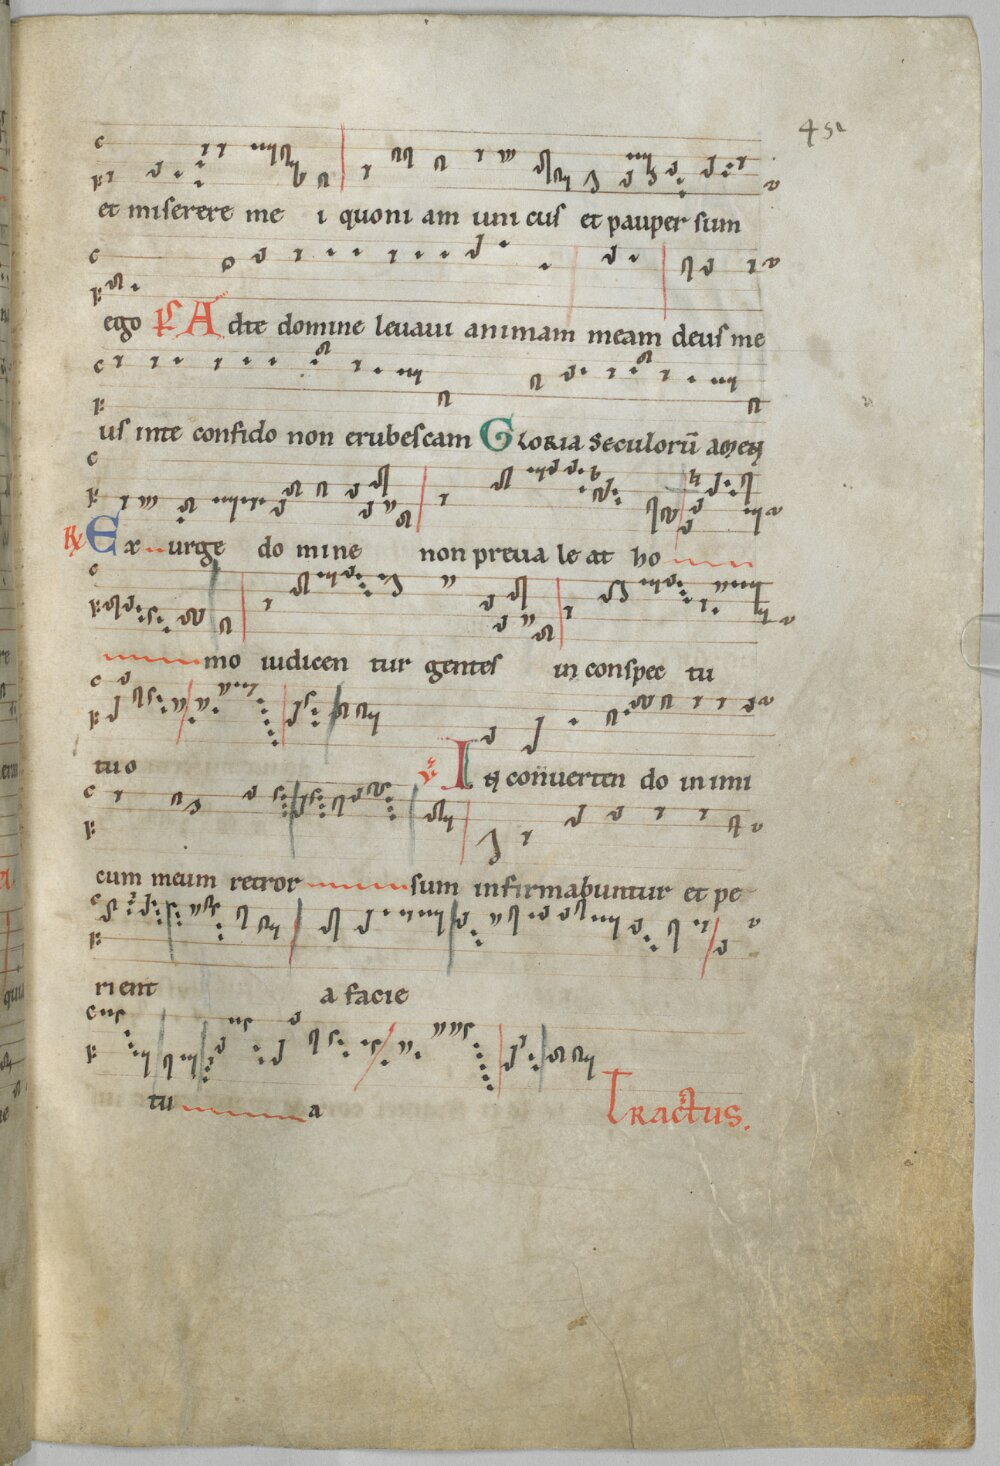 451
et miserere me i quoni am uni cus et pauper sum
ego Ps Adte domine levavi animam meam deus me
us inte confido non erubescam Gloria Seculorū amen
℟ Ex urge do mine non preva le at ho
mo iudicen tur gentes in conspec tu
tuo ℣ In converten do inimi
cum meum retror sum infirmabuntur et pe
rient a facie
tu a Tractus.